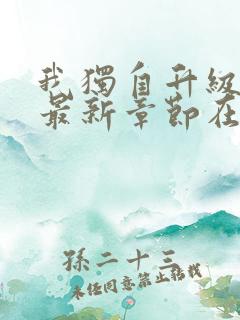 我獨自升級
最新章節在
孫二十三
未经同意禁止转载